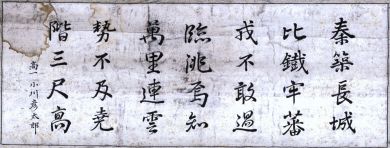 秦築長城
比鐵牢蕃
戎不敢過
臨洮焉知
萬里連雲
勢不及堯
階三尺高
高一小川彦太郎